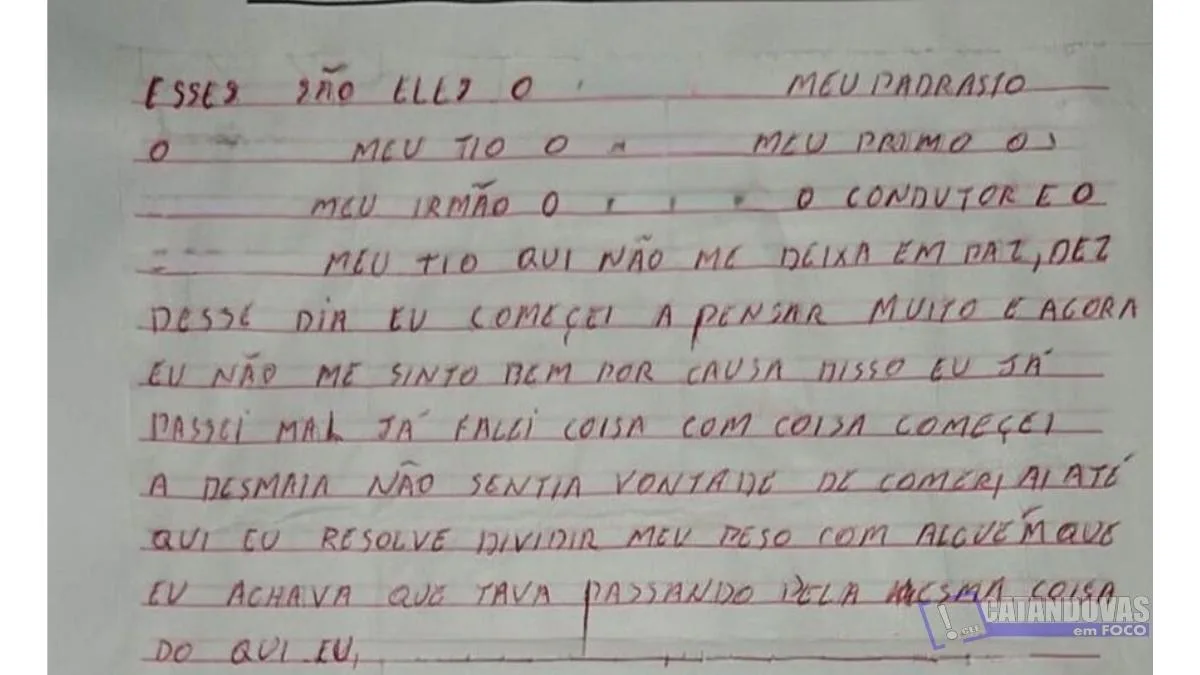 ESSES SÃO ELES O MEU PADRASTO
O MEU TIO O MEU PRIMO O
MEU IRMÃO O O CONDUTOR E O
MEU TIO QUI NÃO ME DEIXA EM PAZ, DEZ
DESSE DIA EU COMEÇEI A PENSAR MUITO E AGORA
EU NÃO ME SINTO BEM POR CAUSA DISSO EU JÁ
PASSEI MAL JÁ FALEI COISA COM COISA COMEÇEI
A DESMAIA NÃO SENTIA VONTADE DE COMER, AI ATÉ
QUI EU RESOLVE DIVIDIR MEU PESO COM ALGUÉM QUE
EU ACHAVA QUE TAVA PASSANDO PELA MESMA COISA
DO QUI EU,
CATANDUVAS
em FOCO